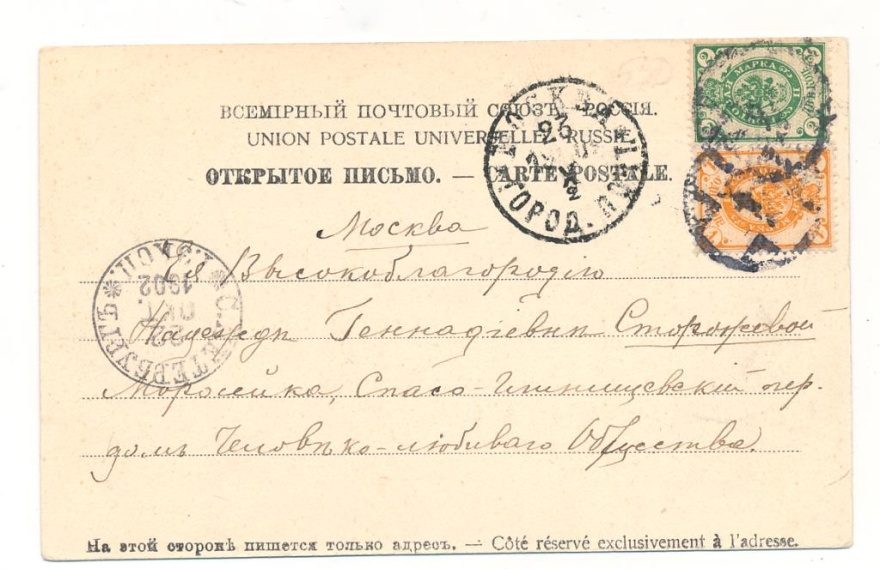 ВСЕМІРНЫЙ ПОЧТОВЫЙ СОЮЗЪ. РОССІЯ.
UNION POSTALE UNIVERSELLE. RUSSIE.
ОТКРЫТОЕ ПИСЬМО. — CARTE POSTALE.
МОСКВА
ГОРОД. П
2
МАРКА
1
С.ПЕТЕРБУРГЪ
22
ОКТ.
1902
Москва
Ея Высокоблагородію
Надеждѣ Геннадіевнѣ Сторожевой
Моросейка, Спасо-Глинищевскій пер.
домъ Человѣко-любиваго Общества.
На этой сторонѣ пишется только адресъ. — Côté réservé exclusivement à l'adresse.